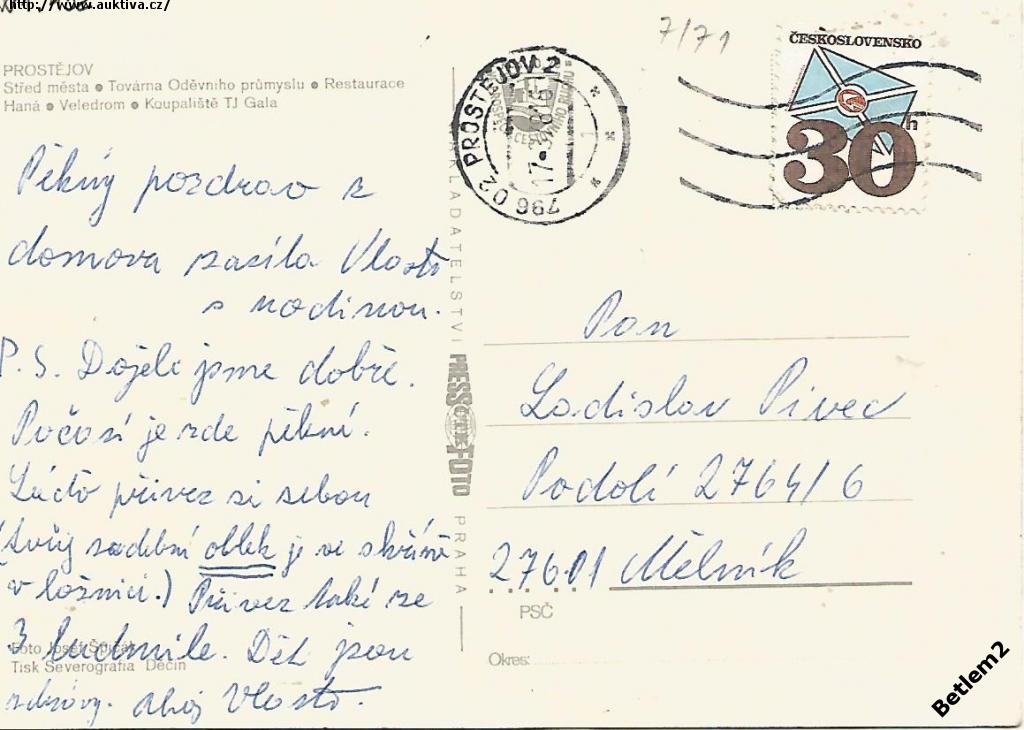 http://www.auktiva.cz/
7/71
PROSTĚJOV
Střed města ● Továrna Oděvního průmyslu ● Restaurace
Haná ● Veledrom ● Koupaliště TJ Gala
Pěkný pozdrav z
domova zasílá Vlasta
s rodinou.
P.S. Dojeli jsme dobře.
Počasí je zde pěkní.
přivez si sebou
svůj svadební oblek je ve skříni
v ložnici.) Přivez také ze
3 ludmile. Děti jsou
zdrávy. ahoj Vlasta.
Foto Josef Špičák
Tisk Severografia Děčín
NAKLADATELSTVÍ PRESSFOTO PRAHA
796 02 PROSTĚJOV 2
ČESKOSLOVENSKO
30h
Pan
Ladislav Pivec
Podolí 2764/6
27601 Mělník
PSČ
Okres:
Betlem2